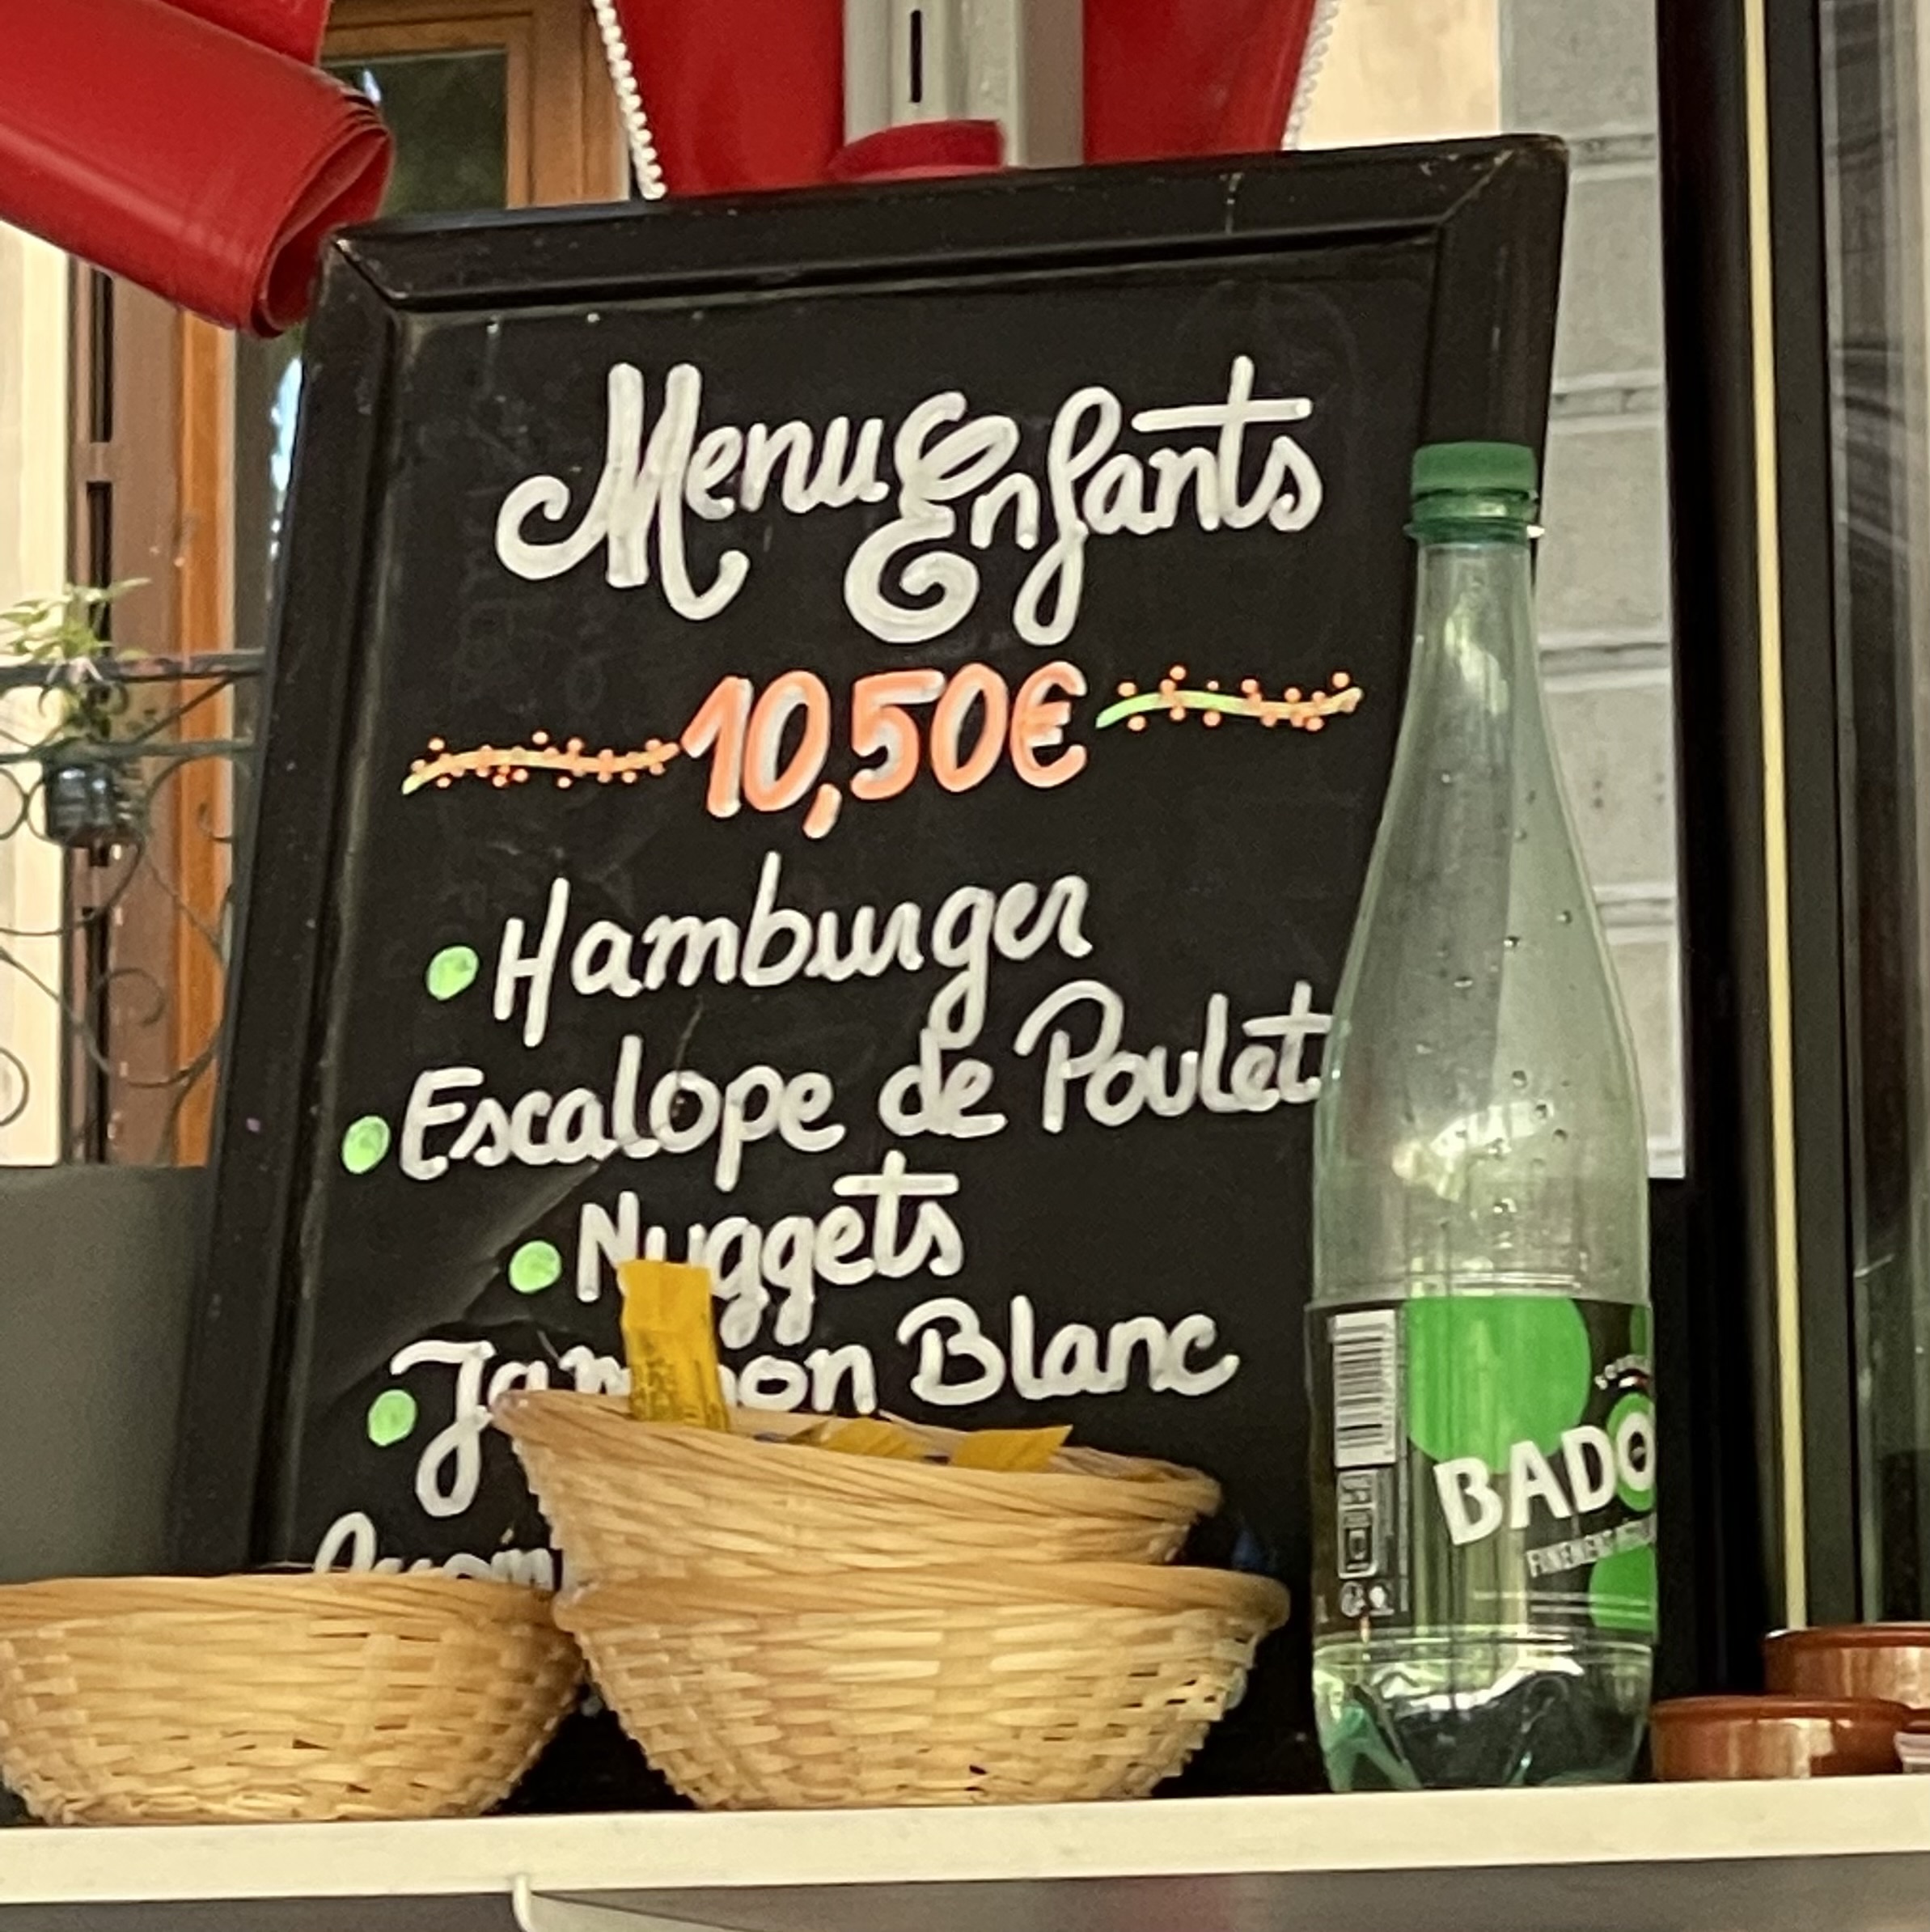 Menu Enfants
10,50€
Hamburger
Escalope de Poulet
Nuggets
Jambon Blanc
BADO